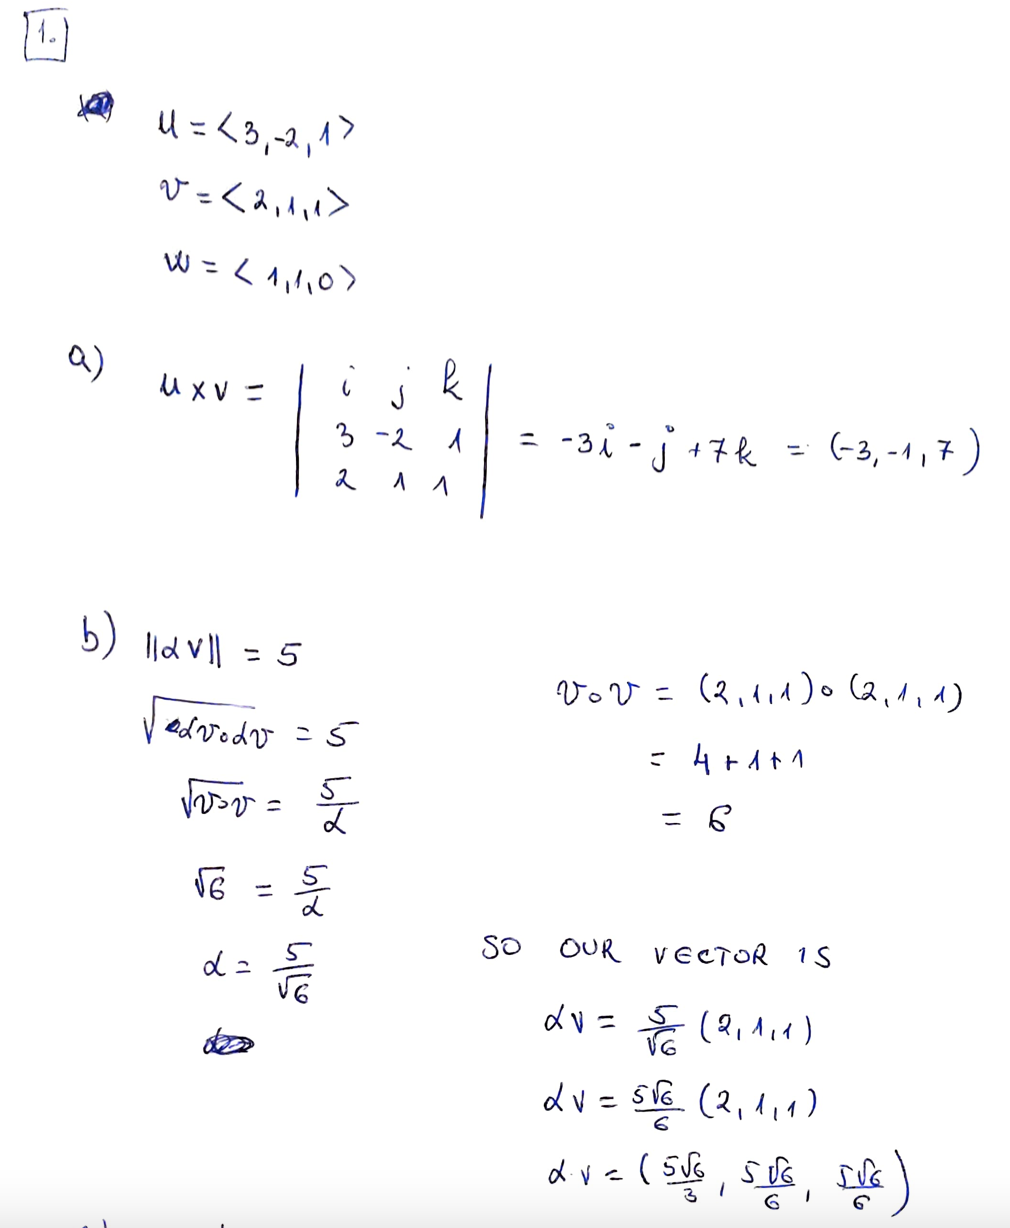 1.
u = <3,-2,1>
v = <2,1,1>
w = <1,1,0>
a)
u x v = | i j k |
3 -2 1
2 1 1
= -3i - j + 7k = (-3,-1,7)
b) ||αv|| = 5
√αv∘αv = 5
√v∘v = 5/α
√6 = 5/α
α = 5/√6
v∘v = (2,1,1)∘(2,1,1)
= 4+1+1
= 6
SO OUR VECTOR IS
αv = 5/√6 (2,1,1)
αv = 5√6/6 (2,1,1)
α·v = (5√6/3, 5√6/6, 5√6/6)